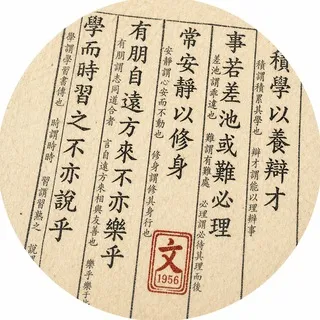 積學以養辯才
積謂積累其學也 辯才謂能以理辯事
事若差池或難必理
差池謂乖違也 難謂有難處 必理謂必待其理而後
常安靜以修身
安靜謂心安而不動也 修身謂修其身行也
有朋自遠方來不亦樂乎
有朋謂志同道合者 言自遠方來相與友善也 樂乎樂于
學而時習之不亦說乎
學謂學習書傳也 時謂時時 習謂習熟之
文
1956